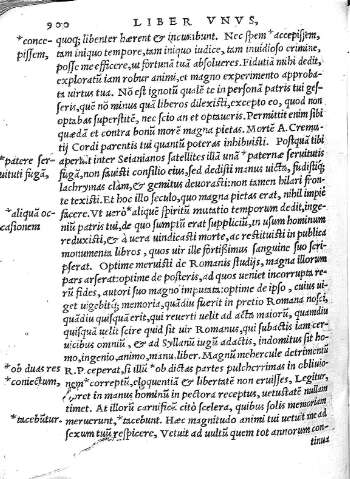 900 LIBER VNVS,
*conce-
pissem,
quoq; libenter hærent & incumbunt. Nec spem *accepissem,
tam iniquo tempore, tam iniquo iudice, tam inuidioso crimine,
posse me efficere, ut fortunã tuã absolueres. Fidutiã mihi dedit,
exploratũ iam robur animi, et magno experimento approba-
ta uirtus tua. Nõ est ignotũ qualẽ te in personã patris tui ges-
seris, quẽ nõ minus quã liberos dilexisti, excepto eo, quod non
optabas superstitẽ, nec scio an et optaueris. Permittit enim sibi
quædã et contra bonũ morẽ magna pietas. Mortẽ A. Cremu-
tij Cordi parentis tui quantũ poteras inhibuisti. Postquã tibi
*patere ser-
uituti fugã,
aperuit inter Seianianos satellites illã unã *paternæ seruitutis
fugã, non fauisti consilio eius, sed dedisti manus uicta, fudistiq́;
lachrymas clãm, & gemitus deuorasti: non tamen hilari fron-
te texisti. Et hoc illo seculo, quo magna pietas erat, nihil impiè
*aliquã oc-
casionem
facere. Vt uerò *aliquẽ spiritũ mutatio temporum dedit, inge-
niũ patris tui, de quo sumptũ erat suppliciũ, in usum hominum
reduxisti, & à uera uindicasti morte, ac restituisti in publica
monumenta libros, quos uir ille fortissimus sanguine suo scri-
pserat. Optimè meruisti de Romanis studijs, magna illorum
pars arserat: optimè de posteris, ad quos ueniet incorrupta re-
rũ fides, autori suo magno imputata: optimè de ipso, cuius ui-
get uigebitq́; memoria, quãdiu fuerit in pretio Romana nosci,
quãdiu quisquã erit, qui reuerti uelit ad acta maiorũ, quamdiu
quisquã uelit scire quid sit uir Romanus, qui subactis iam cer-
uicibus omniũ, & ad Syllanũ iugũ adactis, indomitus sit ho-
mo, ingenio, animo, manu, liber. Magnũ mehercule detrimentũ
*ob duas res
coniectum,
R.P. ceperat, si illũ *ob dictas partes pulcherrimas in obliuio-
nem *correptũ, eloquentiã & libertatẽ non eruisses, Legitur,
floret in manus hominũ in pectora receptus, uetustatẽ nullam
timet. At illorũ carnificũ citò scelera, quibus solis memoriam
*tacebũtur.
meruerunt, *tacebunt. Hæc magnitudo animi tui uetuit me ad
sexum tuũ respicere, Vetuit ad uultũ quem tot annorum con-
tinua